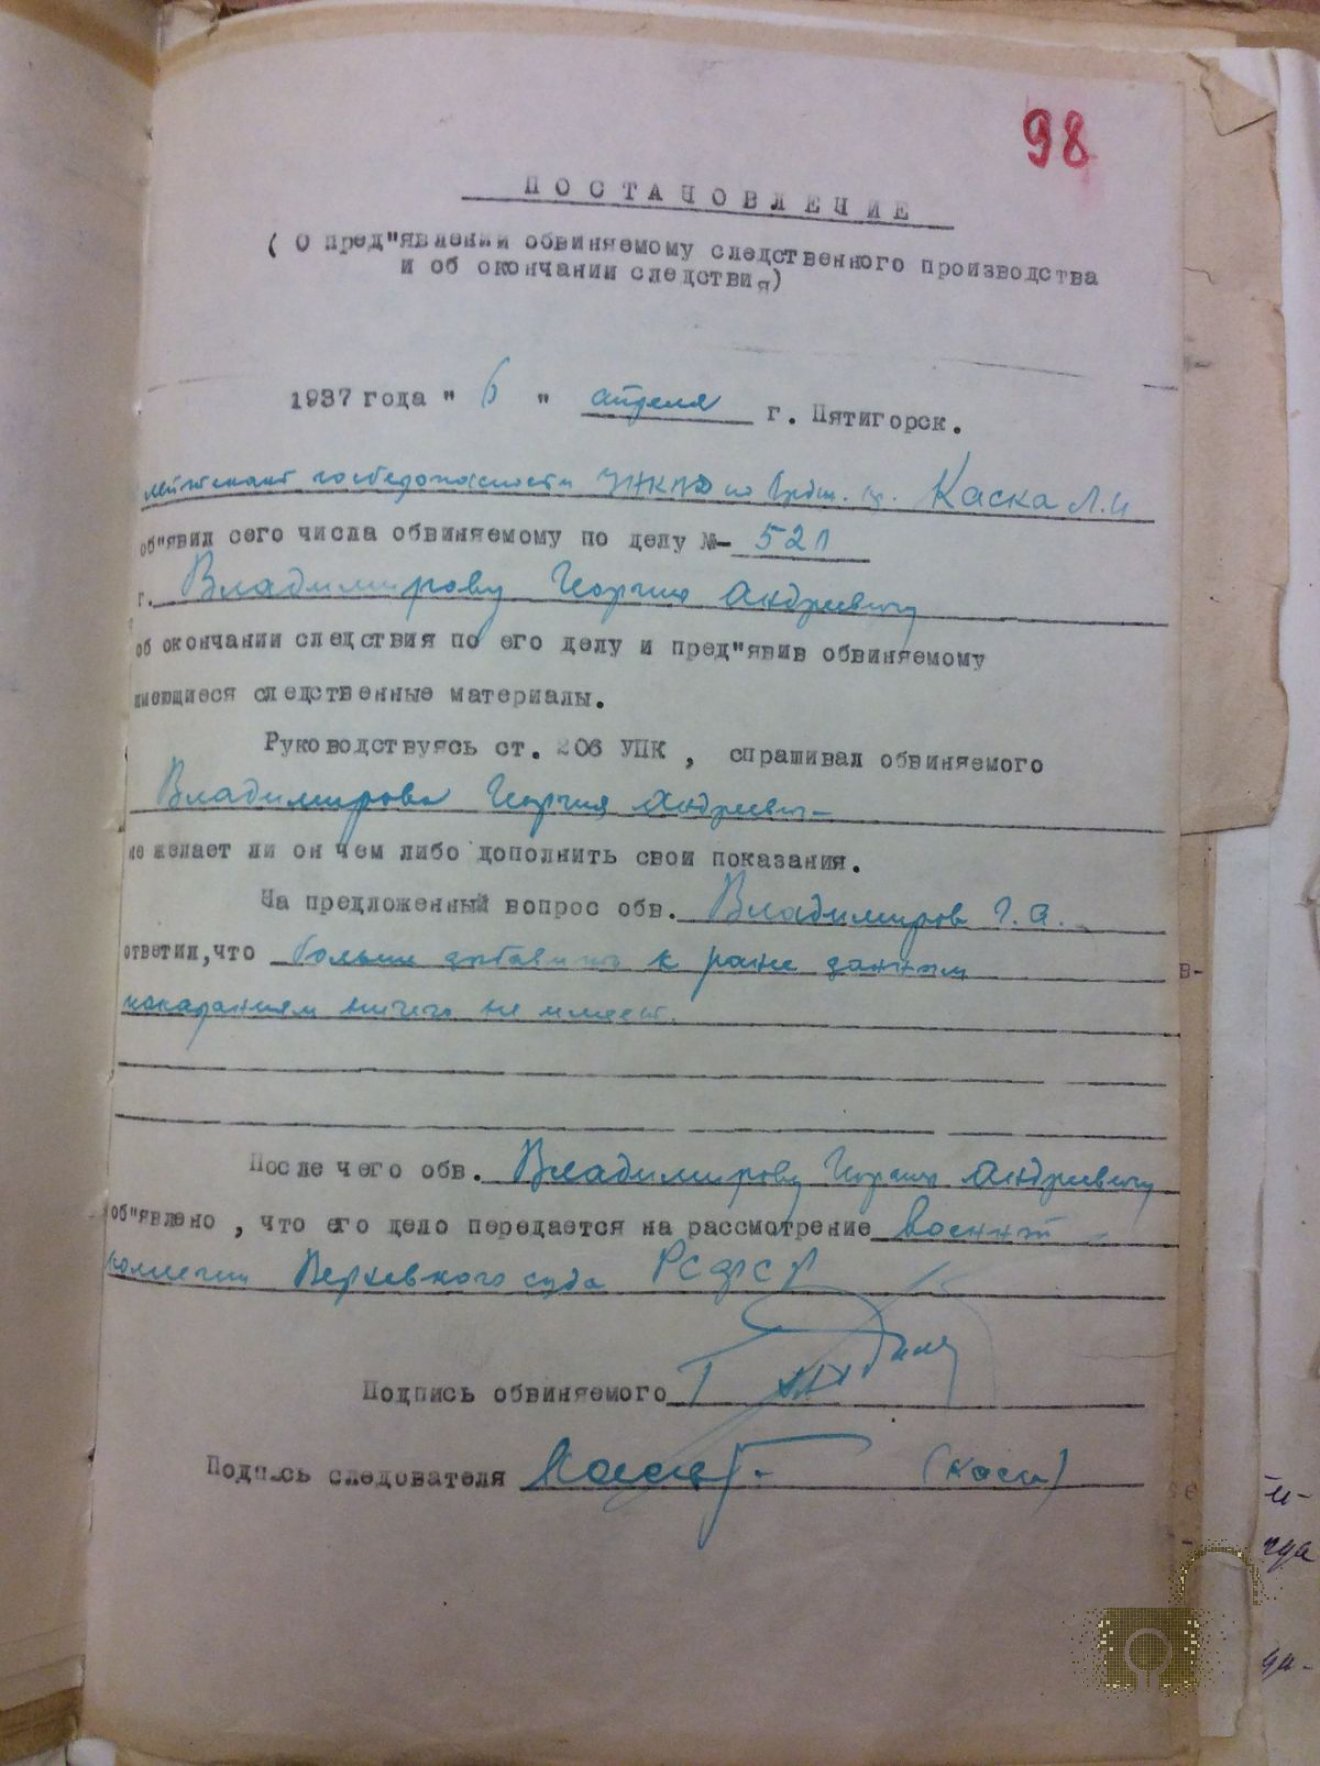 98
ПОСТАНОВЛЕНИЕ
( О пред"явлении обвиняемому следственного производства
и об окончании следствия)
1937 года " 6 " апреля г. Пятигорск.
лейтенант госбезопасности УНКВД по Орджон. кр. Каска Л.И
об"явил сего числа обвиняемому по делу №- 521
г. Владимирову Георгию Андреевичу
об окончании следствия по его делу и пред"явив обвиняемому
имеющиеся следственные материалы.
Руководствуясь ст. 206 УПК , спрашивал обвиняемого
Владимирова Георгия Андреевич-
не желает ли он чем либо дополнить свои показания.
На предложенный вопрос обв. Владимиров Г.А.
ответил,что больше добавить к ранее данным
показаниям ничего не имеет.
После чего обв. Владимирову Георгию Андреевичу
об"явлено , что его дело передается на рассмотрение военной
коллегии Верховного суда РСФСР
Подпись обвиняемого
Подпись следователя (Каска)
в-
й-
уда
да-